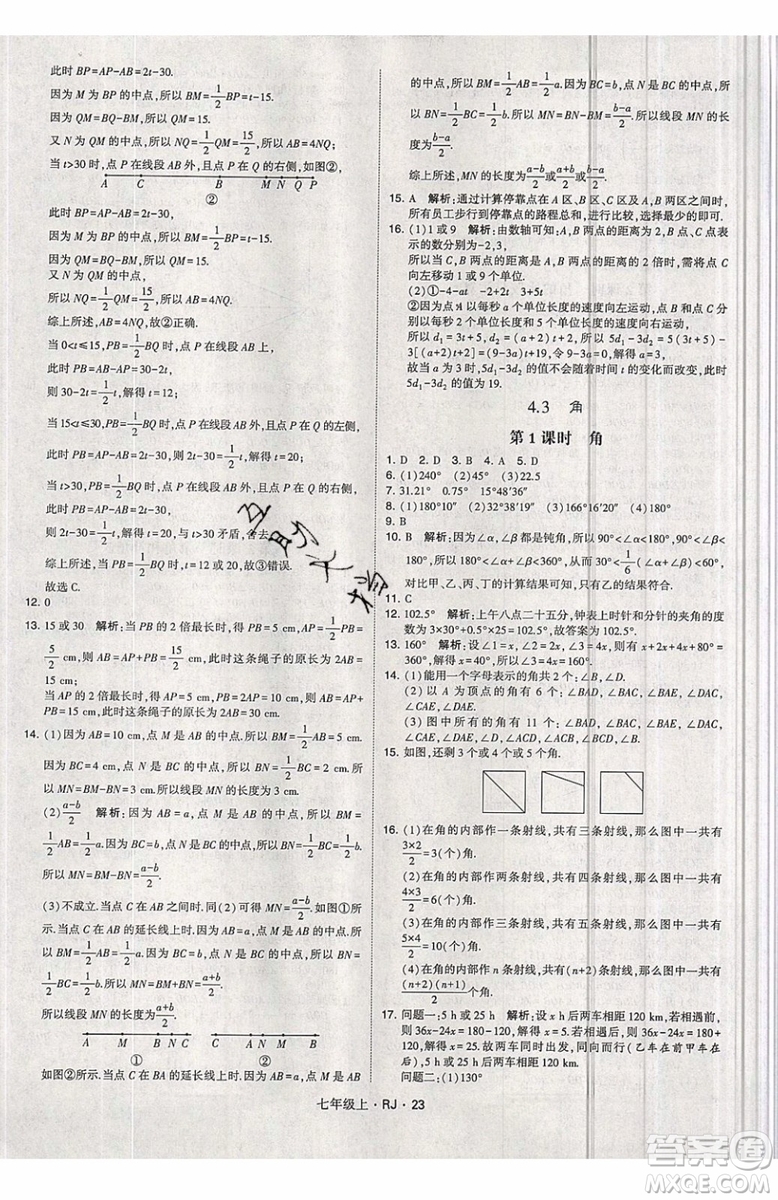 此时 BP=AP-AB=2t-30.
因为 M 为 BP 的中点,所以 BM=1/2BP=t-15.
因为 QM=BQ-BM,所以 QM=15.
又 N 为 QM 的中点,所以 NQ=1/2QM=15/2,所以 AB=4NQ;
当 t>30 时,点 P 在线段 AB 外,且点 P 在 Q 的右侧,如图②,
A C B Q M N P
②
此时 BP=AP-AB=2t-30,
因为 M 为 BP 的中点,所以 BM=1/2BP=t-15.
因为 QM=BQ-BM,所以 QM=15.
又因为 N 为 QM 的中点,
所以 NQ=1/2QM=15/2,所以 AB=4NQ.
综上所述,AB=4NQ,故②正确.
当 0<t≤15,PB=1/2BQ 时,点 P 在线段 AB 上,
则 30-2t=1/2t,解得 t=12;
当 15<t≤30,PB=1/2BQ 时,点 P 在线段 AB 外,且点 P 在 Q 的左侧,
此时 AP=2t,PB=AP-AB,则 2t-30=1/2t,解得 t=20;
当 t>30,PB=1/2BQ 时,点 P 在线段 AB 外,且点 P 在 Q 的右侧,
则 2t-30=1/2t,解得 t=20,与 t>30 矛盾,舍去.
综上所述,PB=1/2BQ 时,t=12 或 t=20,故③错误.
故选 C.
12. 0
13. 15 或 30 解析:当 PB 的 2 倍最长时,得 PB=5/2 cm,AP=1/2PB=
5/2 cm,AB=AP+PB=15/2 cm,所以这条绳子的原长为 2AB=
15 cm;
当 AP 的 2 倍最长时,得 AP=5 cm,PB=10 cm,AB=AP+PB=
15 cm,此时这条绳子的原长为 2AB=30 cm.
14. (1)因为 AB=10 cm,点 M 是 AB 的中点,所以 BM=1/2AB=5 cm.
因为 BC=4 cm,点 N 是 BC 的中点,所以 BN=1/2BC=2 cm,所以
MN=BM-BN=3 cm.所以线段 MN 的长度为 3 cm.
(2)a-b/2 解析:因为 AB=a,点 M 是 AB 的中点,所以 BM=
1/2AB=1/2a.因为 BC=b,点 N 是 BC 的中点,所以 BN=1/2BC=1/2b.
所以 MN=BM-BN=a-b/2.
(3)不成立.当点 C 在 AB 之间时.同(2)可得 MN=a-b/2;如图①所
示.当点 C 在 AB 的延长线上时.因为 AB=a,点 M 是 AB 的中点,所
以 BM=1/2AB=1/2a.因为 BC=b,点 N 是 BC 的中点,所以 BN=
1/2BC=1/2b,所以 MN=BM+BN=a+b/2.
A M B N C C N A M B
① ②
如图②所示.当点 C 在 BA 的延长线上时.因为 AB=a,点 M 是 AB
的中点,所以 BM=1/2AB=1/2a.因为 BC=b,点 N 是 BC 的中点,所
以 BN=1/2BC=b/2.所以 MN=BN-BM=b-a/2.所以线段 MN 的长
度为b-a/2.
综上所述,MN 的长度为a-b/2或a+b/2或b-a/2.
15. A 解析:通过计算停靠点在 A 区、B 区、A B 两区之间时,
所有员工步行到停靠点的路程总和,进行比较,选择最少的即可.
16. (1)1 或 9 解析:由数轴可知:A,B 两点的距离为 2,B,C 点表
示的数分别为-2,3,
所以当 C,B 两点的距离是 A,B 两点的距离的 2 倍时,需将点 C
向左移动 1 或 9 个单位长度.
(2)①-4-at -2+2t 3+5t
②因为点 A 以每秒 a 个单位长度的速度向左运动,点 B 以每秒
2 个单位长度向右运动,点 C 以每秒 5 个单位长度的速度向右运动,
所以 d₁=3t+5,d₂=(a+2)t+2,所以 5d₁-3d₂=5(3t+5)-
3[(a+2)t+2]=(9-3a)t+19,令 9-3a=0,得 a=3,
故当 a 为 3 时,5d₁-3d₂ 的值不会随着时间 t 的变化而改变,此时
5d₁-3d₂ 的值为 19.
4.3 角
第 1 课时 角
1. D 2. D 3. B 4. A 5. D
6. (1)240° (2)45° (3)22.5
7. 31.21° 0.75° 15°48′36″
8. (1)180°10″ (2)32°38′19″ (3)10°16′ (4)180°
9. B
10. B 解析:因为∠α、∠β 都是钝角,所以 90°<∠α<180°,90°<∠β<
180°,所以 180°<∠α+∠β<360°,所以 30°<1/6(∠α+∠β)<60°,
对比甲、乙、丙、丁的计算结果可知,只有乙的结果符合.
11. C
12. 102.5° 解析:上午八点二十五分,钟表上时针和分针的夹角的度
数为 3×30°+0.5°×25=102.5°.故答案为 102.5°.
13. 160° 解析:设∠1=x,∠2=3x,∠3=4x,则 x+3x+4x+80°=
360°,解得 x=40°,所以∠3=4x=160°.
14. (1)能用一个字母表示的角共 2 个:∠B,∠C.
(2)以 A 为顶点的角有 6 个:∠BAD,∠BAE,∠BAC,∠DAE,∠DAC,
∠CAE.
(3)图中所有的角共有 12 个:∠BAD,∠BAE,∠BAC,∠DAE,∠DAC,
∠CAE,∠B,∠ADB,∠ADC,∠AEB,∠AEC,∠C.
15. 如图,还剩 3 个或 4 个或 5 个角.
16. (1)在角的内部作一条射线,共有三条射线,那么图中一共有
3×2/2=3(个)角.
(2)在角的内部作两条射线,共有四条射线,那么图中一共有
4×3/2=6(个)角.
(3)在角的内部作三条射线,共有五条射线,那么图中一共有
5×4/2=10(个)角.
(4)在角的内部作 n 条射线,共有(n+2)条射线,那么图中一共有
(n+2)(n+1)/2(个)角.
17. 问题一:5 h 或 25 h 解析:设 x h 后两车相距 120 km,若相遇前,
则 36x-24x=180-120,解得 x=5;若相遇后,则 36x-24x=180+
120,解得 x=25.两车同时出发,同向而行(乙车在前甲车在后),
经过 5 h 或 25 h 两车相距 120 km.
问题二:(1)130°
七年级上·RJ·23
答案圈
MXQE.COM